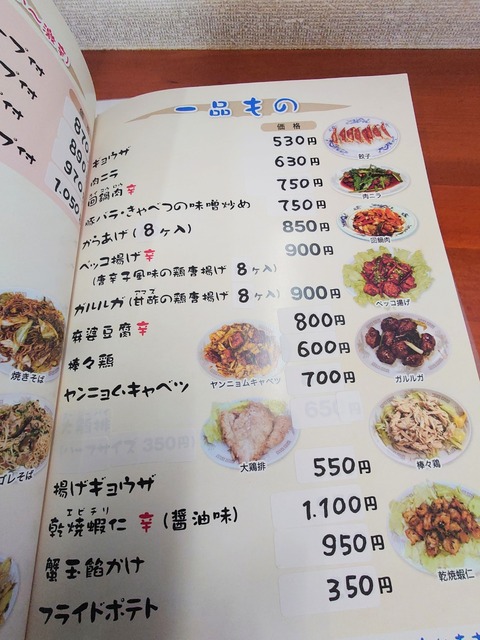 ープ付
プ付
プ付
プ付
870
890
970
1.050
焼きそば
ゴレそば
一品もの
価格
ギョウザ 530円
肉ニラ 630円
回鍋肉 辛 750円
豚バラ・きゃべつの味噌炒め 750円
からあげ(8ヶ入) 850円
ベッコ揚げ 辛 900円
(唐辛子風味の鶏唐揚げ 8ヶ入)
ガルルガ(甘酢の鶏唐揚げ 8ヶ入) 900円
麻婆豆腐 辛 800円
棒々鶏 600円
ヤンニョム・キャベツ 700円
大鶏排 650円
ハーフサイズ 350円)
揚げギョウザ 550円
エビチリ
乾焼蝦仁 辛(醤油味) 1.100円
蟹玉餡かけ 950円
フライドポテト 350円
餃子
肉ニラ
回鍋肉
ベッコ揚げ
ヤンニョムキャベツ
ガルルガ
大鶏排
棒々鶏
乾焼蝦仁